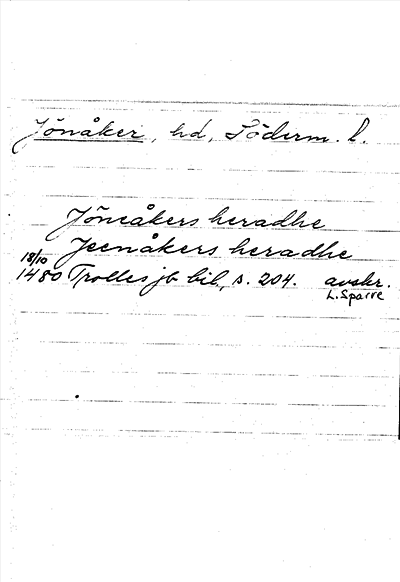 Jönåker, hd, Söderm. l.
Jöneåkers heradhe
Jeenåkers heradhe
18/10
1480 Trolles jb bil., s. 204. avskr.
L. Sparre